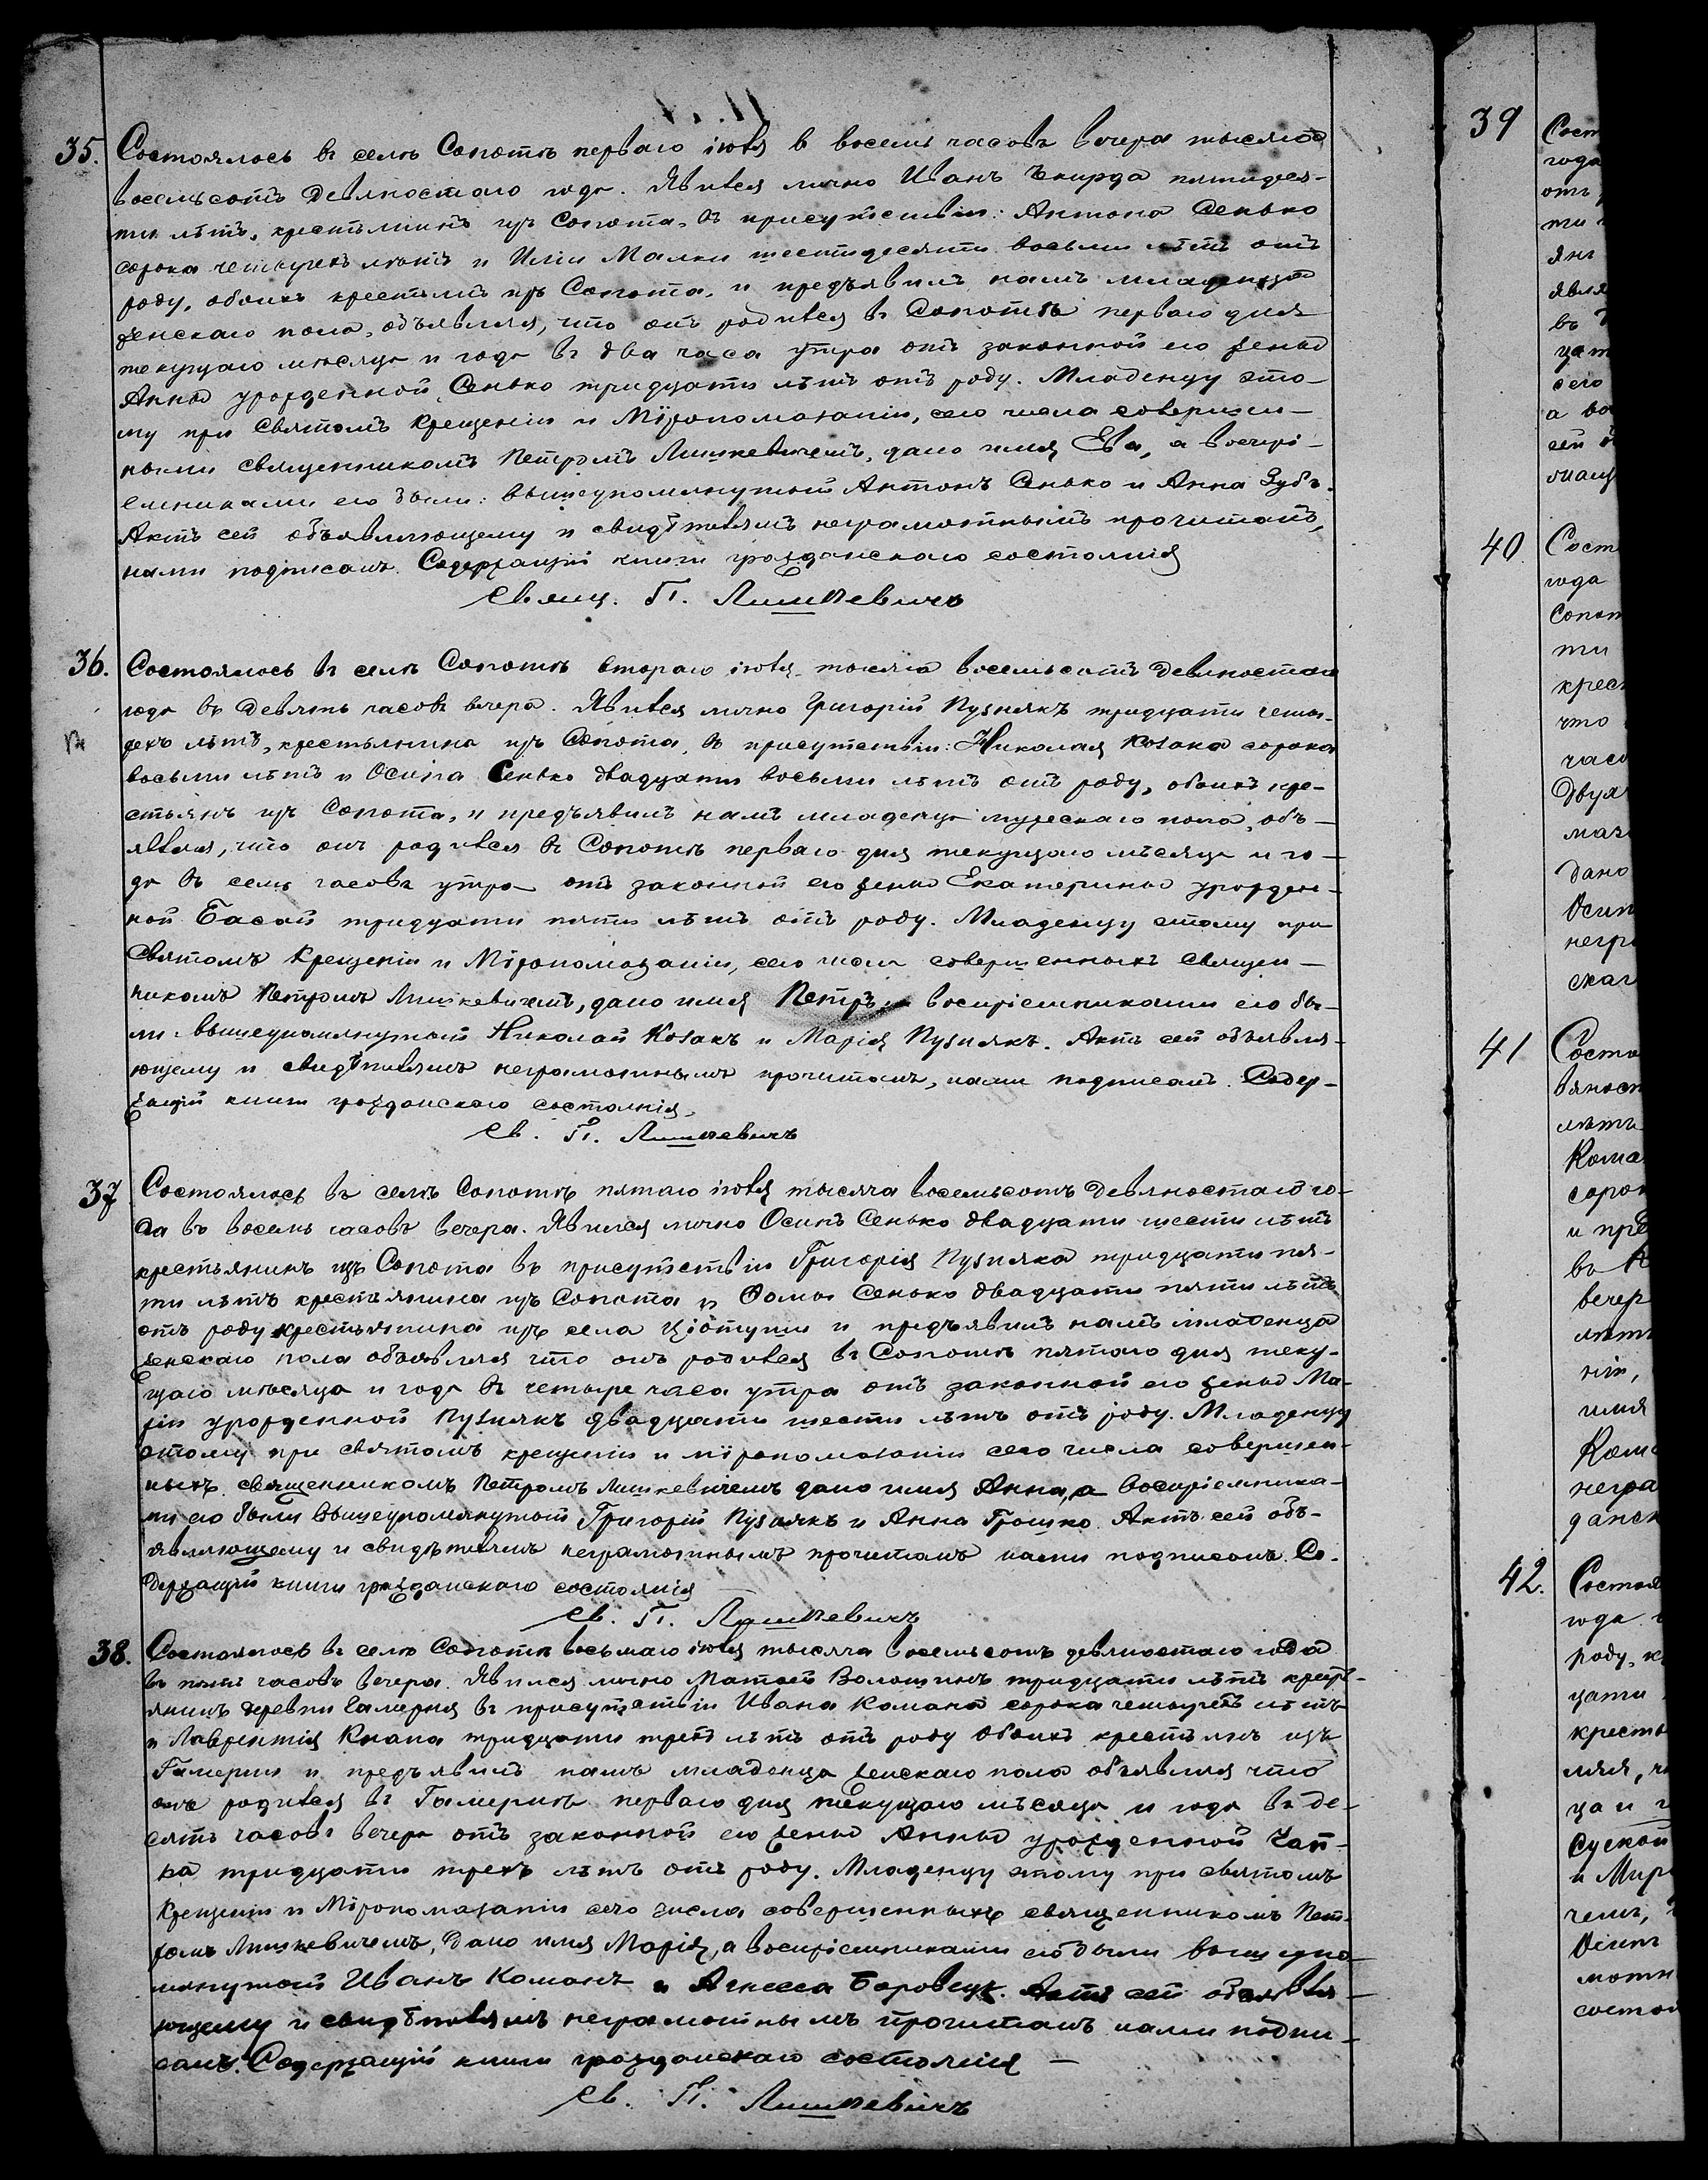 35. Состоялось въ селѣ Сопотѣ перваго іюля в восемь часовъ вечера тысяча
восемьсотъ девяностаго года. Явился лично Иванъ пятидеся-
ти лѣтъ, крестьянинъ изъ Сопота, въ присутствіи: Антона Сенько
сорока четырехъ лѣтъ и Иліи Малки шестидесяти восьми лѣтъ отъ
роду, обоихъ крестьянъ изъ Сопота, и предъявилъ намъ младенца
женскаго пола, объявляя, что онъ родился въ Сопотѣ перваго дня
текущаго мѣсяца и года въ два часа утра отъ законной его жены
Анны урожденной Сенько тридцати лѣтъ отъ роду. Младенцу это-
му при Святомъ Крещеніи и Мѵропомазаніи, сего числа совершен-
ными священникомъ Петромъ Лишкевичемъ, дано имя Ева, а воспрі-
емниками его были: вышеупомянутый Антонъ Сенько и Анна Зубъ.
Актъ сей объявляющему и свидѣтелямъ неграмотнымъ прочитанъ,
нами подписанъ. Содержащій книги гражданскаго состоянія
Свящ. П. Лишкевичъ
36. Состоялось въ селѣ Сопотѣ втораго іюля тысяча восемьсотъ девяностаго
года въ девять часовъ вечера. Явился лично Григорій Пузнякъ тридцати четы-
рехъ лѣтъ, крестьянина изъ Сопота, въ присутствіи: Николая Козака сорока
восьми лѣтъ и Осипа Сенько двадцати восьми лѣтъ отъ роду, обоихъ кре-
стьянъ изъ Сопота, и предъявилъ намъ младенца мужескаго пола, объ-
являя, что онъ родился въ Сопотѣ перваго дня текущаго мѣсяца и го-
да въ семь часовъ утра отъ законной его жены Екатерины урожден-
ной Басай тридцати пяти лѣтъ отъ роду. Младенцу этому при
Святомъ Крещеніи и Мѵропомазаніи, сего числа совершенныхъ священ-
никомъ Петромъ Лишкевичемъ, дано имя Петръ, а воспріемниками его бы-
ли: вышеупомянутый Николай Козакъ и Марія Пузнякъ. Актъ сей объявля-
ющему и свидѣтелямъ неграмотнымъ прочитанъ, нами подписанъ. Содер-
жащій книги гражданскаго состоянія.
Св. П. Лишкевичъ
37 Состоялось въ селѣ Сопотѣ пятаго іюля тысяча восемьсотъ девяностаго го-
да въ восемь часовъ вечера. Явился лично Осипъ Сенько двадцати шести лѣтъ
крестьянинъ изъ Сопота въ присутствіи Григорія Пузняка тридцати пя-
ти лѣтъ крестьянина изъ Сопота и Фомы Сенько двадцати пяти лѣтъ
отъ роду крестьянина изъ села Ціотуши и предъявилъ намъ младенца
женскаго пола объявляя что онъ родился въ Сопотѣ пятаго дня теку-
щаго мѣсяца и года въ четыре часа утра отъ законной его жены Ма-
ріи урожденной Пузнякъ двадцати шести лѣтъ отъ роду. Младенцу
этому при святомъ крещеніи и мѵропомазаніи сего числа совершен-
ныхъ священникомъ Петромъ Лишкевичемъ дано имя Анна, а воспріемника-
ми его были вышеупомянутый Григорій Пузнякъ и Анна Грошко. Актъ сей объ-
являющему и свидѣтелямъ неграмотнымъ прочитанъ нами подписанъ. Со-
держащій книги гражданскаго состоянія
Св. П. Лишкевичъ
38. Состоялось въ селѣ Сопотѣ восьмаго іюля тысяча восемьсотъ девяностаго года
въ пять часовъ вечера. Явился лично Матвей Волошинъ тридцати лѣтъ кресть-
янинъ деревни Гамерня въ присутствіи Ивана Комана сорока четырехъ лѣтъ
и Лаврентія Кнапа тридцати трехъ лѣтъ отъ роду обоихъ крестьянъ изъ
Гамерни и предъявилъ намъ младенца женскаго пола объявляя что
онъ родился въ Гамернѣ перваго дня текущаго мѣсяца и года въ де-
сять часовъ вечера отъ законной его жены Анны урожденной Чап-
ка тридцати трехъ лѣтъ отъ роду. Младенцу этому при святомъ
Крещеніи и Мѵропомазаніи сего числа совершенныхъ священникомъ Пет-
ромъ Лишкевичемъ, дано имя Марія, а воспріемниками его были вышеупо-
мянутый Иванъ Команъ и Агнеса Боровецъ. Актъ сей объявля-
ющему и свидѣтелямъ неграмотнымъ прочитанъ нами подпи-
санъ. Содержащій книги гражданскаго состоянія
Св. П. Лишкевичъ
39
40
41
42.